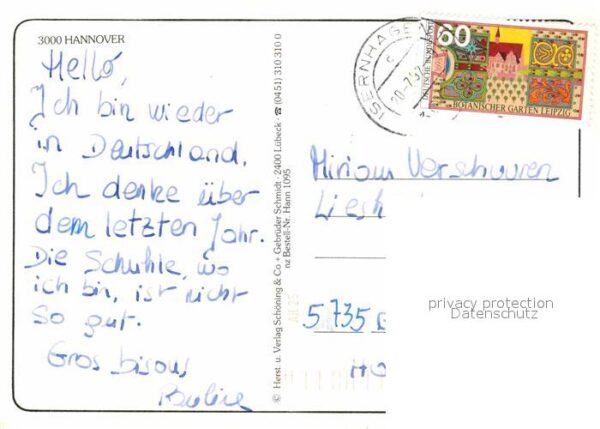 3000 HANNOVER
Hello,
Ich bin wieder
in Deutschland.
Ich denke über
dem letzten Jahr.
Die Schuhle, wo
ich bin, ist nicht
so gut.
Gros bisous
© Herst. u. Verlag Schöning & Co + Gebrüder Schmidt · 2400 Lübeck · ☎ (0451) 310 310 0
nz Bestell-Nr. Hann 1095
ISERNHAGEN
60
DEUTSCHE BUNDESPOST
BOTANISCHER GARTEN LEIPZIG
Miriam Verschuuren
Liesh
5.735
privacy protection
Datenschutz